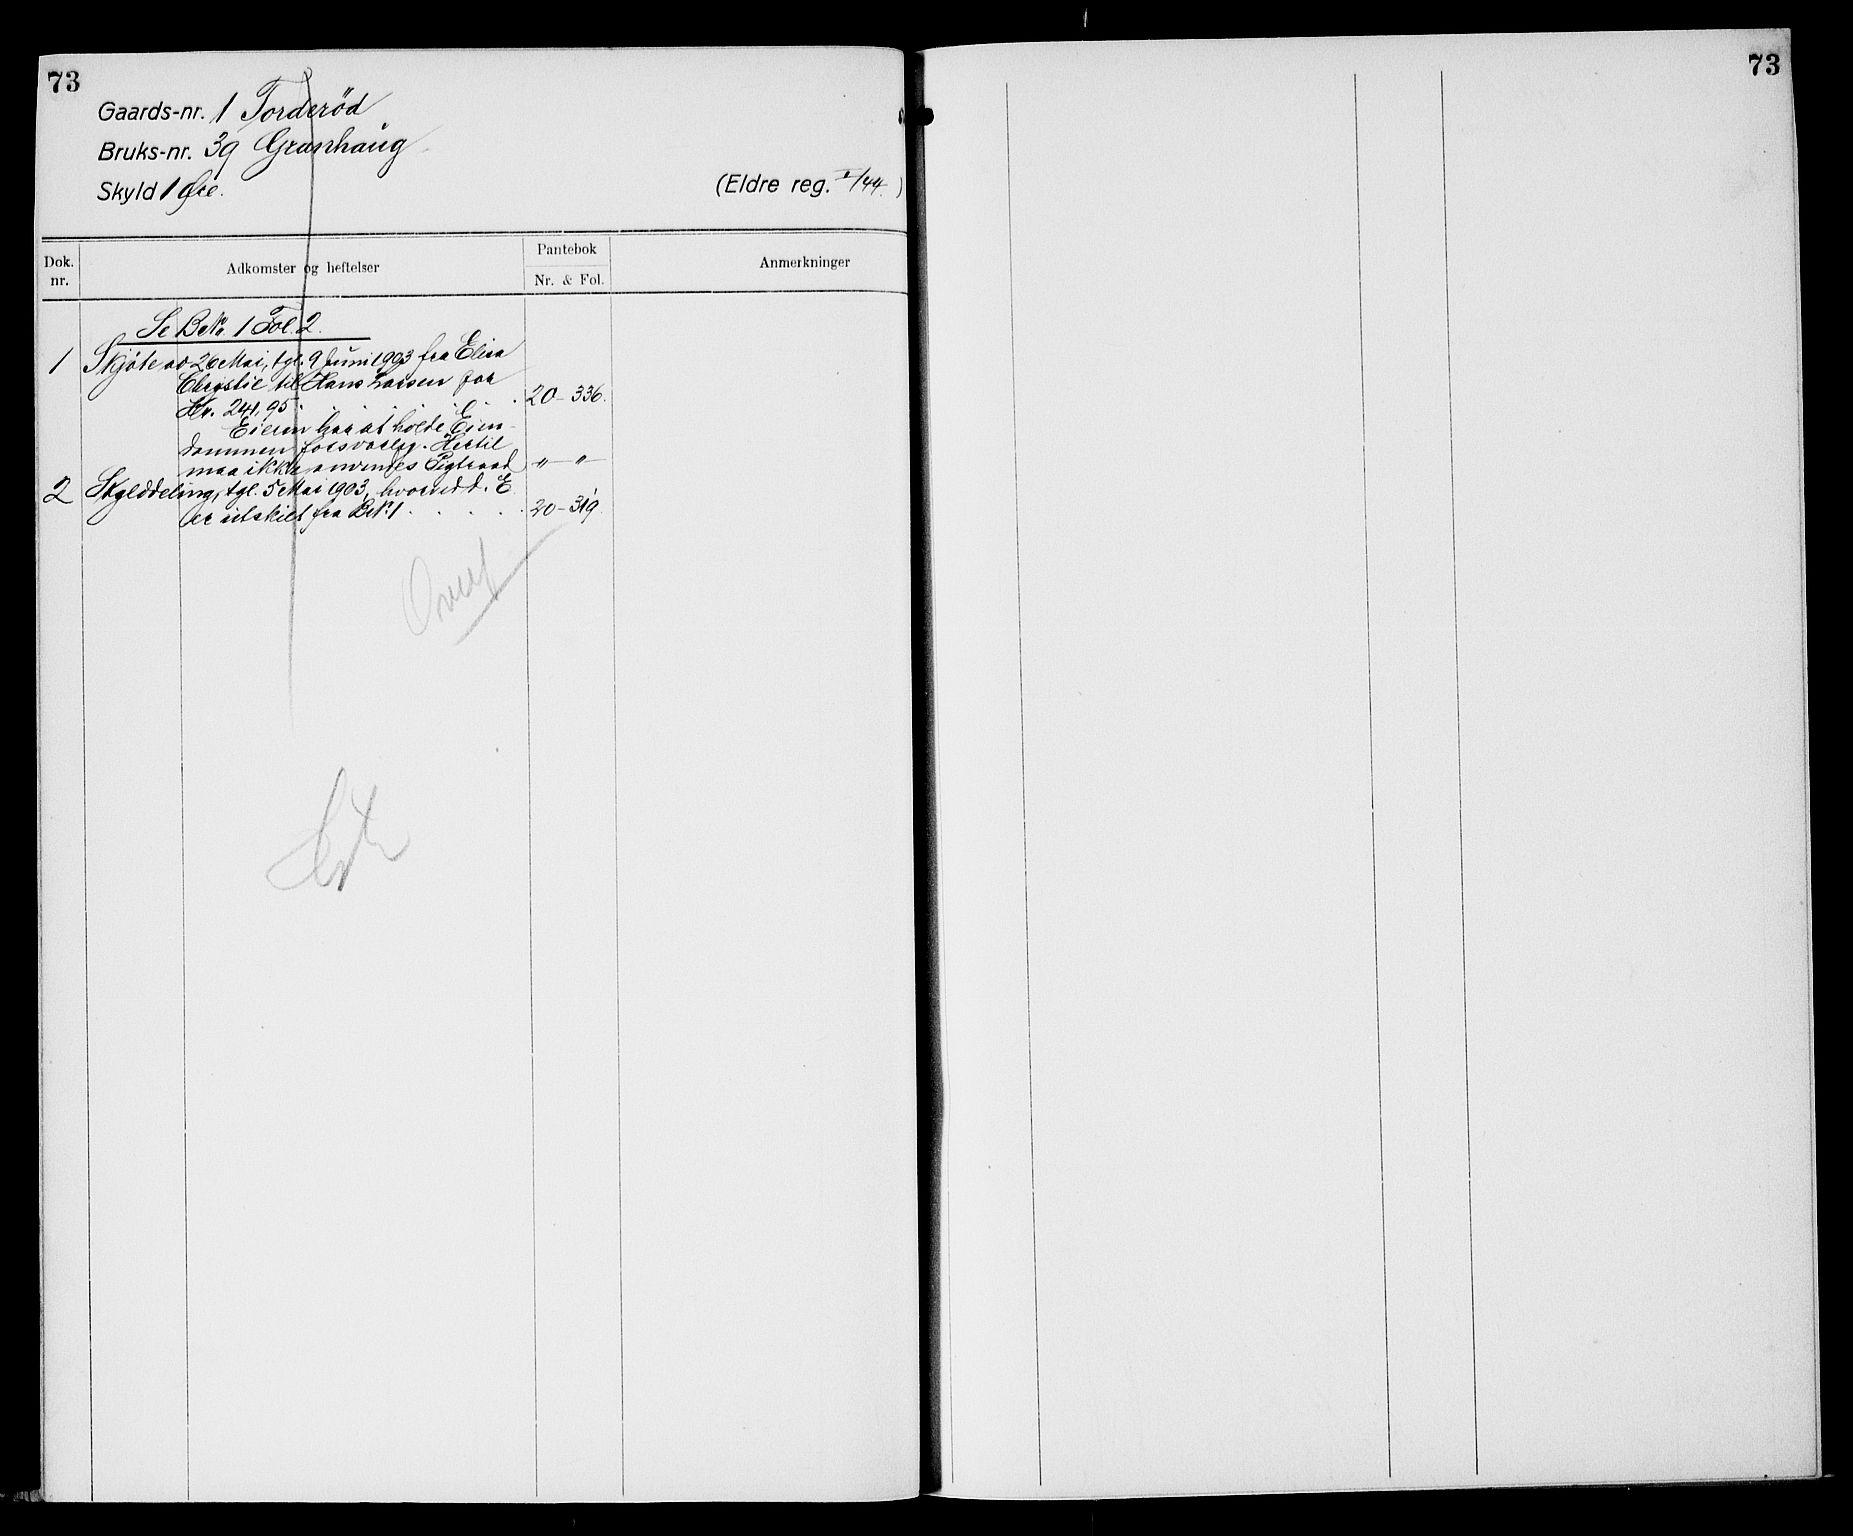 73
Gaards-nr. 1 Torderöd
Bruks-nr. 39 Granhaug
Skyld 1 Øre.
(Eldre reg. I/44.)
Dok. nr.
Adkomster og heftelser
Pantebok
Nr. & Fol.
Anmerkninger
Se BrNo. 1 Fol. 2.
1 Skjöte av 26 Mai, tgl. 9 Juni 1903 fra Elisa
Christie til Hans Larsen for
Kr. 241,95. 20-336.
Eieren har at holde Eien-
dommen forsvarlig. Hertil
maa ikke anvendes Pigtraad „ — „ —
2 Skylddeling, tgl. 5 Mai 1903, hvorved d. E
er utskilt fra BrNr. 1 . . . . . 20-319.
Overf
73